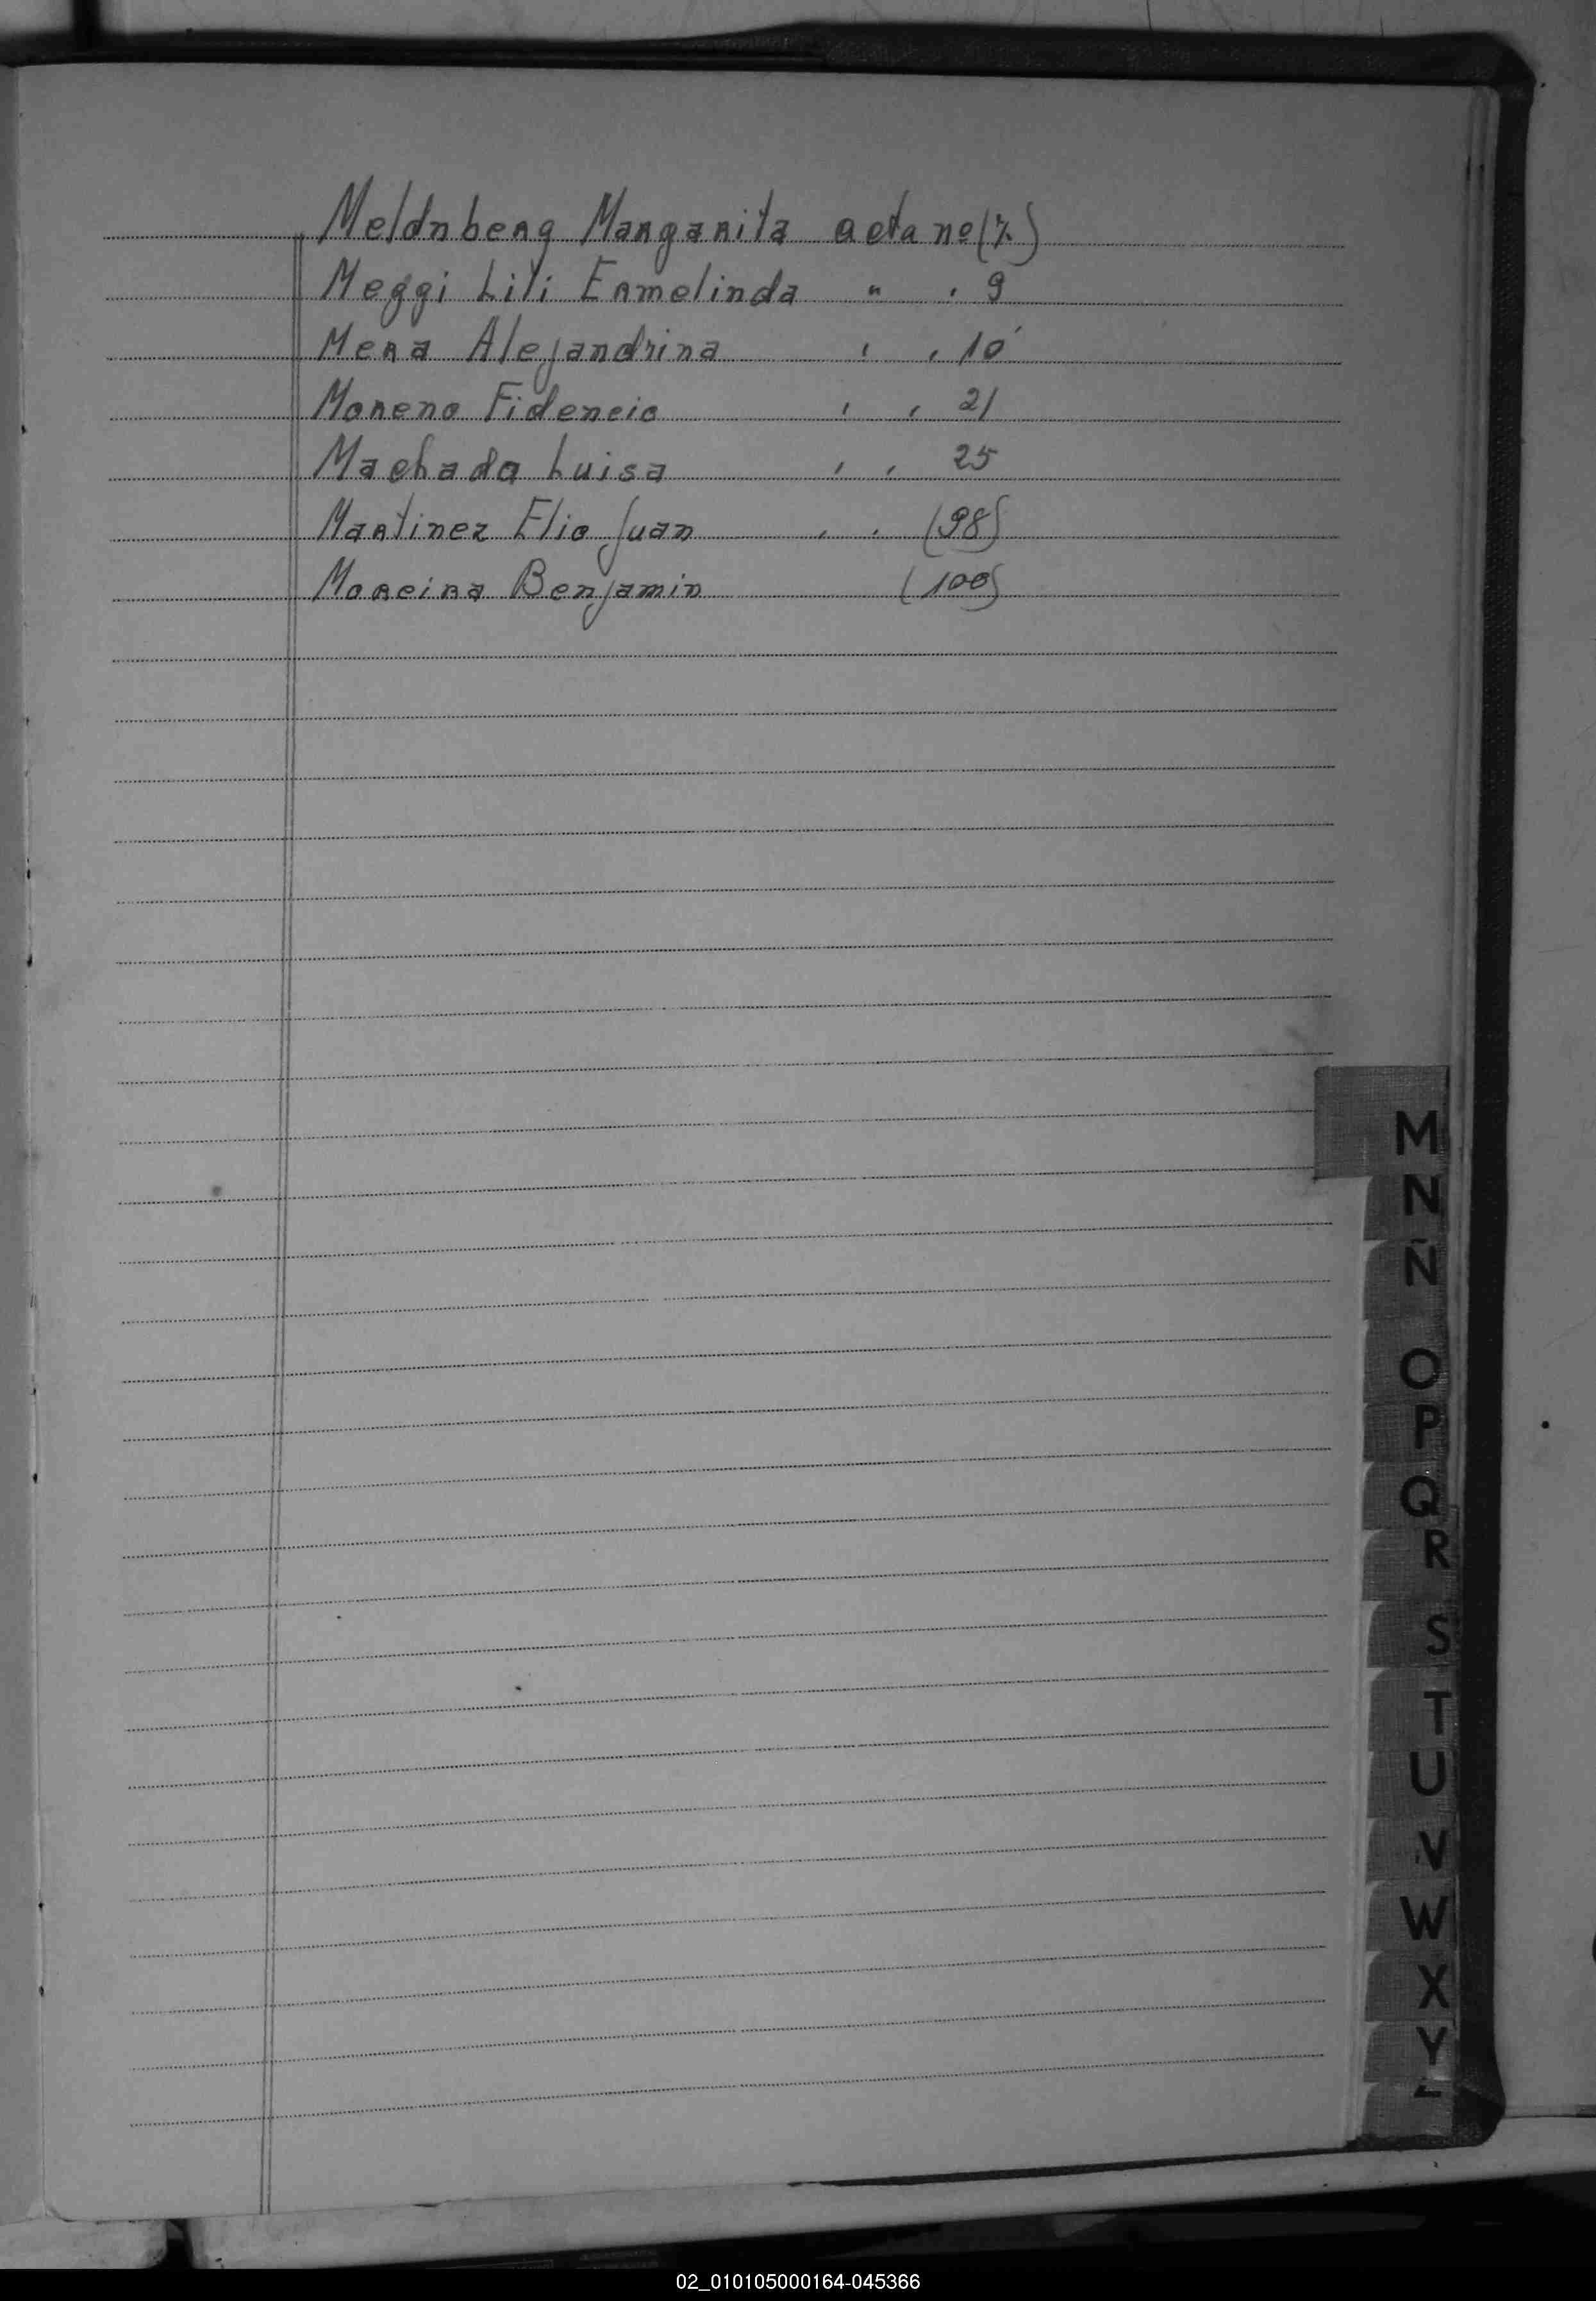 Meldrberg Margarita acta no (7)
Meggi Lili Ermelinda " , 9
Mera Alejandrina , , 10
Moreno Fidencio , , 21
Machado Luisa , , 25
Martinez Elio Juan , , (98)
Moreira Benjamin (100)
M
N
Ñ
O
P
Q
R
S
T
U
V
W
X
Y
Z
02_010105000164-045366